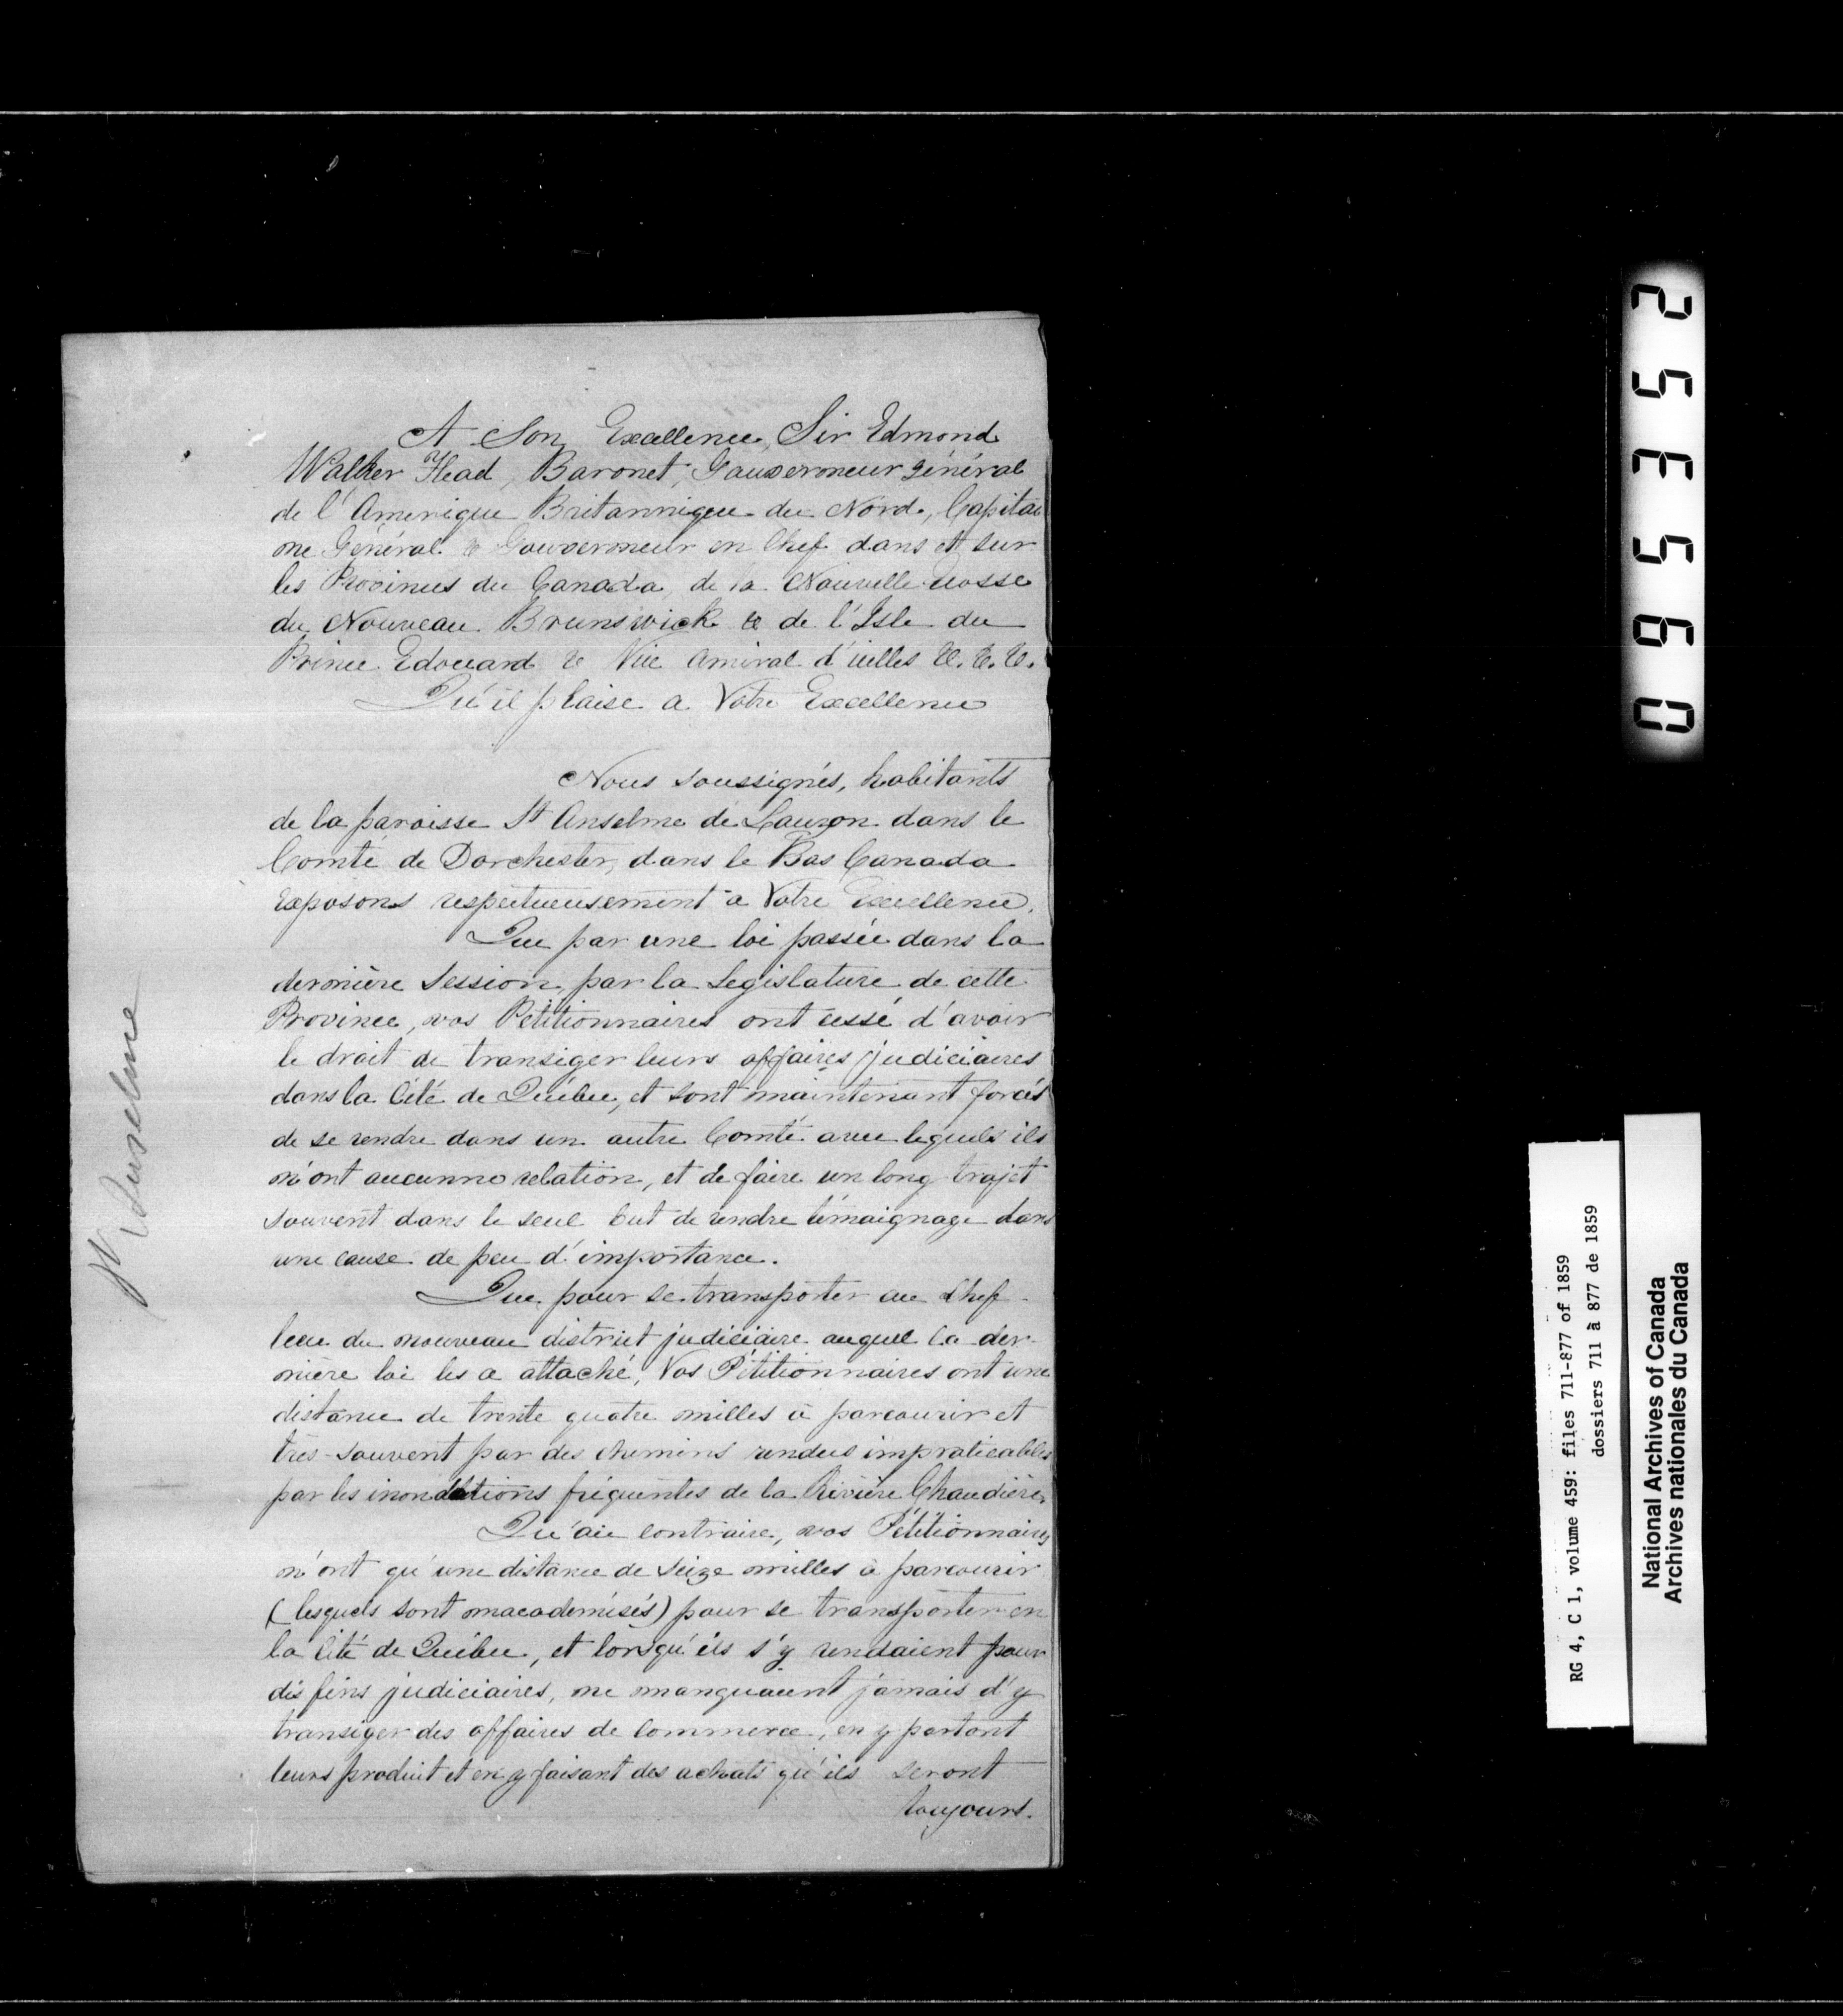 A Son Excellence, Sir Edmond
Walker Head, Baronet, Gouverneur général
de l'Amerique Britannique du Nord, Capitai
ne Général & Gouverneur en Chef dans et sur
les Provinces du Canada, de la Nouvelle Ecosse
du Nouveau Brunswick & de l'Isle du
Prince Edouard & Vice Amiral d'icelles &. &. &.
Qu'il plaise a Votre Excellence
Nous soussignés, habitants
de la paroisse St Anselme de Lauzon dans le
Comté de Dorchester, dans le Bas Canada
Exposons respectueusement à Votre Excellence.
Que par une loi passée dans la
dernière Session, par la Legislature de cette
Province, vos Pétitionnaires ont cessé d'avoir
le droit de transiger leurs affaires judiciaires
dans la Cité de Québec, et sont maintenant forcés
de se rendre dans un autre Comté avec lequels ils
n'ont aucunne relation, et de faire un long trajet
souvent dans le seul but de rendre témoignage dans
une cause de peu d'importance.
Que pour se transporter au Chef
lieu du nouveau district judiciaire auquel la der-
nière loi les a attaché, Vos Pétitionnaires ont une
distance de trente quatre milles à parcourir et
très-souvent par des chemins rendus impraticables
par les inondations fréquentes de la Rivière Chaudière,
Qu'au contraire, vos Pétitionnaires
n'ont qu'une distance de seize milles à parcourir
(lesquels sont macadémisés) pour se transporter en
la Cité de Québec, et lorsqu'ils s'y rendaient pour
des fins judiciaires, ne manquaient jamais d'y
transiger des affaires de Commerce, en y portant
leurs produit et en y faisant des achats qu'ils seront
toujours.
St Anselme
095352
RG 4, C 1, volume 459: files 711-877 of 1859
dossiers 711 à 877 de 1859
National Archives of Canada
Archives nationales du Canada